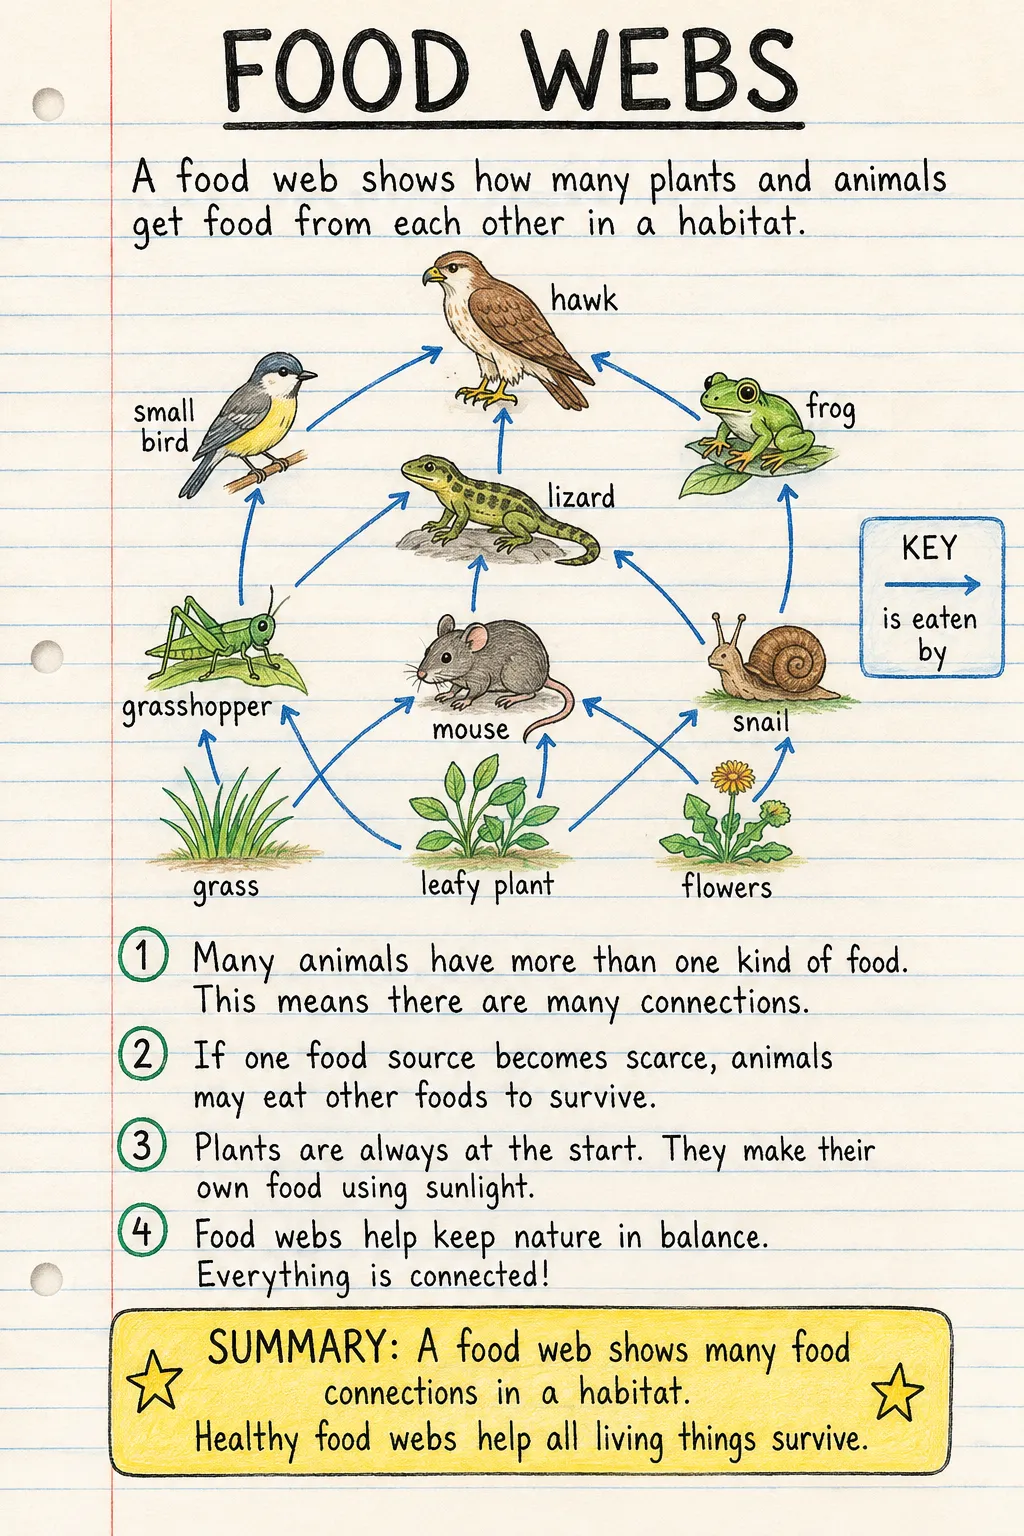 FOOD WEBS
A food web shows how many plants and animals
get food from each other in a habitat.
hawk
small
bird
frog
lizard
KEY
is eaten
by
grasshopper
mouse
snail
grass
leafy plant
flowers
1 Many animals have more than one kind of food.
This means there are many connections.
2 If one food source becomes scarce, animals
may eat other foods to survive.
3 Plants are always at the start. They make their
own food using sunlight.
4 Food webs help keep nature in balance.
Everything is connected!
SUMMARY: A food web shows many food
connections in a habitat.
Healthy food webs help all living things survive.